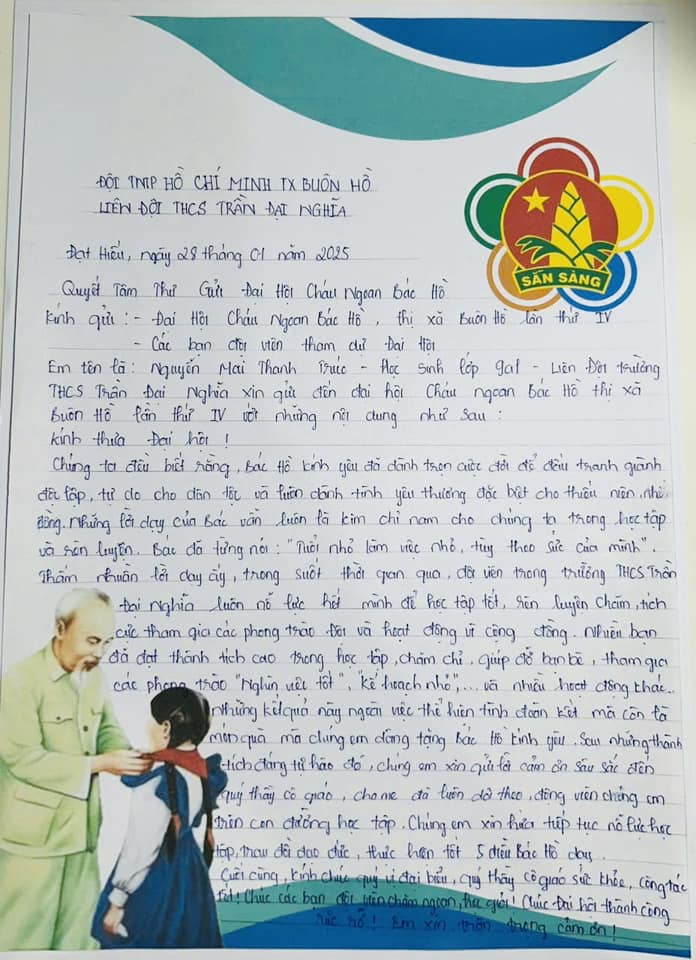 ĐỘI TNTP HỒ CHÍ MINH TX BUÔN HỒ
LIÊN ĐỘI THCS TRẦN ĐẠI NGHĨA
SẴN SÀNG
Đạt Hiếu, ngày 28 tháng 01 năm 2025
Quyết Tâm Thư Gửi Đại Hội Cháu Ngoan Bác Hồ
Kính gửi : - Đại Hội Cháu Ngoan Bác Hồ, thị xã Buôn Hồ lần thứ IV
- Các bạn đội viên tham dự Đại Hội
Em tên là : Nguyễn Mai Thanh Trúc - Học sinh lớp 9a1 - Liên Đội trường
THCS Trần Đại Nghĩa xin gửi đến đại hội Cháu ngoan Bác Hồ thị xã
Buôn Hồ lần thứ IV với những nội dung như sau :
Kính thưa Đại hội !
Chúng ta đều biết rằng, Bác Hồ kính yêu đã dành trọn cuộc đời để đấu tranh giành
độc lập, tự do cho dân tộc và luôn dành tình yêu thương đặc biệt cho thiếu niên, nhi
đồng. Những lời dạy của Bác vẫn luôn là kim chỉ nam cho chúng ta trong học tập
và rèn luyện. Bác đã từng nói : "Tuổi nhỏ làm việc nhỏ, tùy theo sức của mình".
Thấm nhuần lời dạy ấy, trong suốt thời gian qua, đội viên trong trường THCS Trần
Đại Nghĩa luôn nỗ lực hết mình để học tập tốt, rèn luyện chăm, tích
cực tham gia các phong trào Đội và hoạt động vì cộng đồng. Nhiều bạn
đã đạt thành tích cao trong học tập, chăm chỉ, giúp đỡ bạn bè, tham gia
các phong trào "Nghìn việc tốt", "kế hoạch nhỏ",... và nhiều hoạt động khác...
những kết quả này ngoài việc thể hiện tinh đoàn kết mà còn là
món quà mà chúng em dâng tặng Bác Hồ kính yêu. Sau những thành
tích đáng tự hào đó, chúng em xin gửi lời cảm ơn sâu sắc đến
quý thầy cô giáo, cha mẹ đã luôn dõi theo, động viên chúng em
trên con đường học tập. Chúng em xin hứa tiếp tục nỗ lực học
tập, trau dồi đạo đức, thực hiện tốt 5 điều Bác Hồ dạy.
Cuối cùng, kính chúc quý vị đại biểu, quý thầy cô giáo sức khỏe, công tác
tốt! Chúc các bạn đội viên chăm ngoan, học giỏi! Chúc Đại hội thành công
rực rỡ ! Em xin trân trọng cảm ơn !